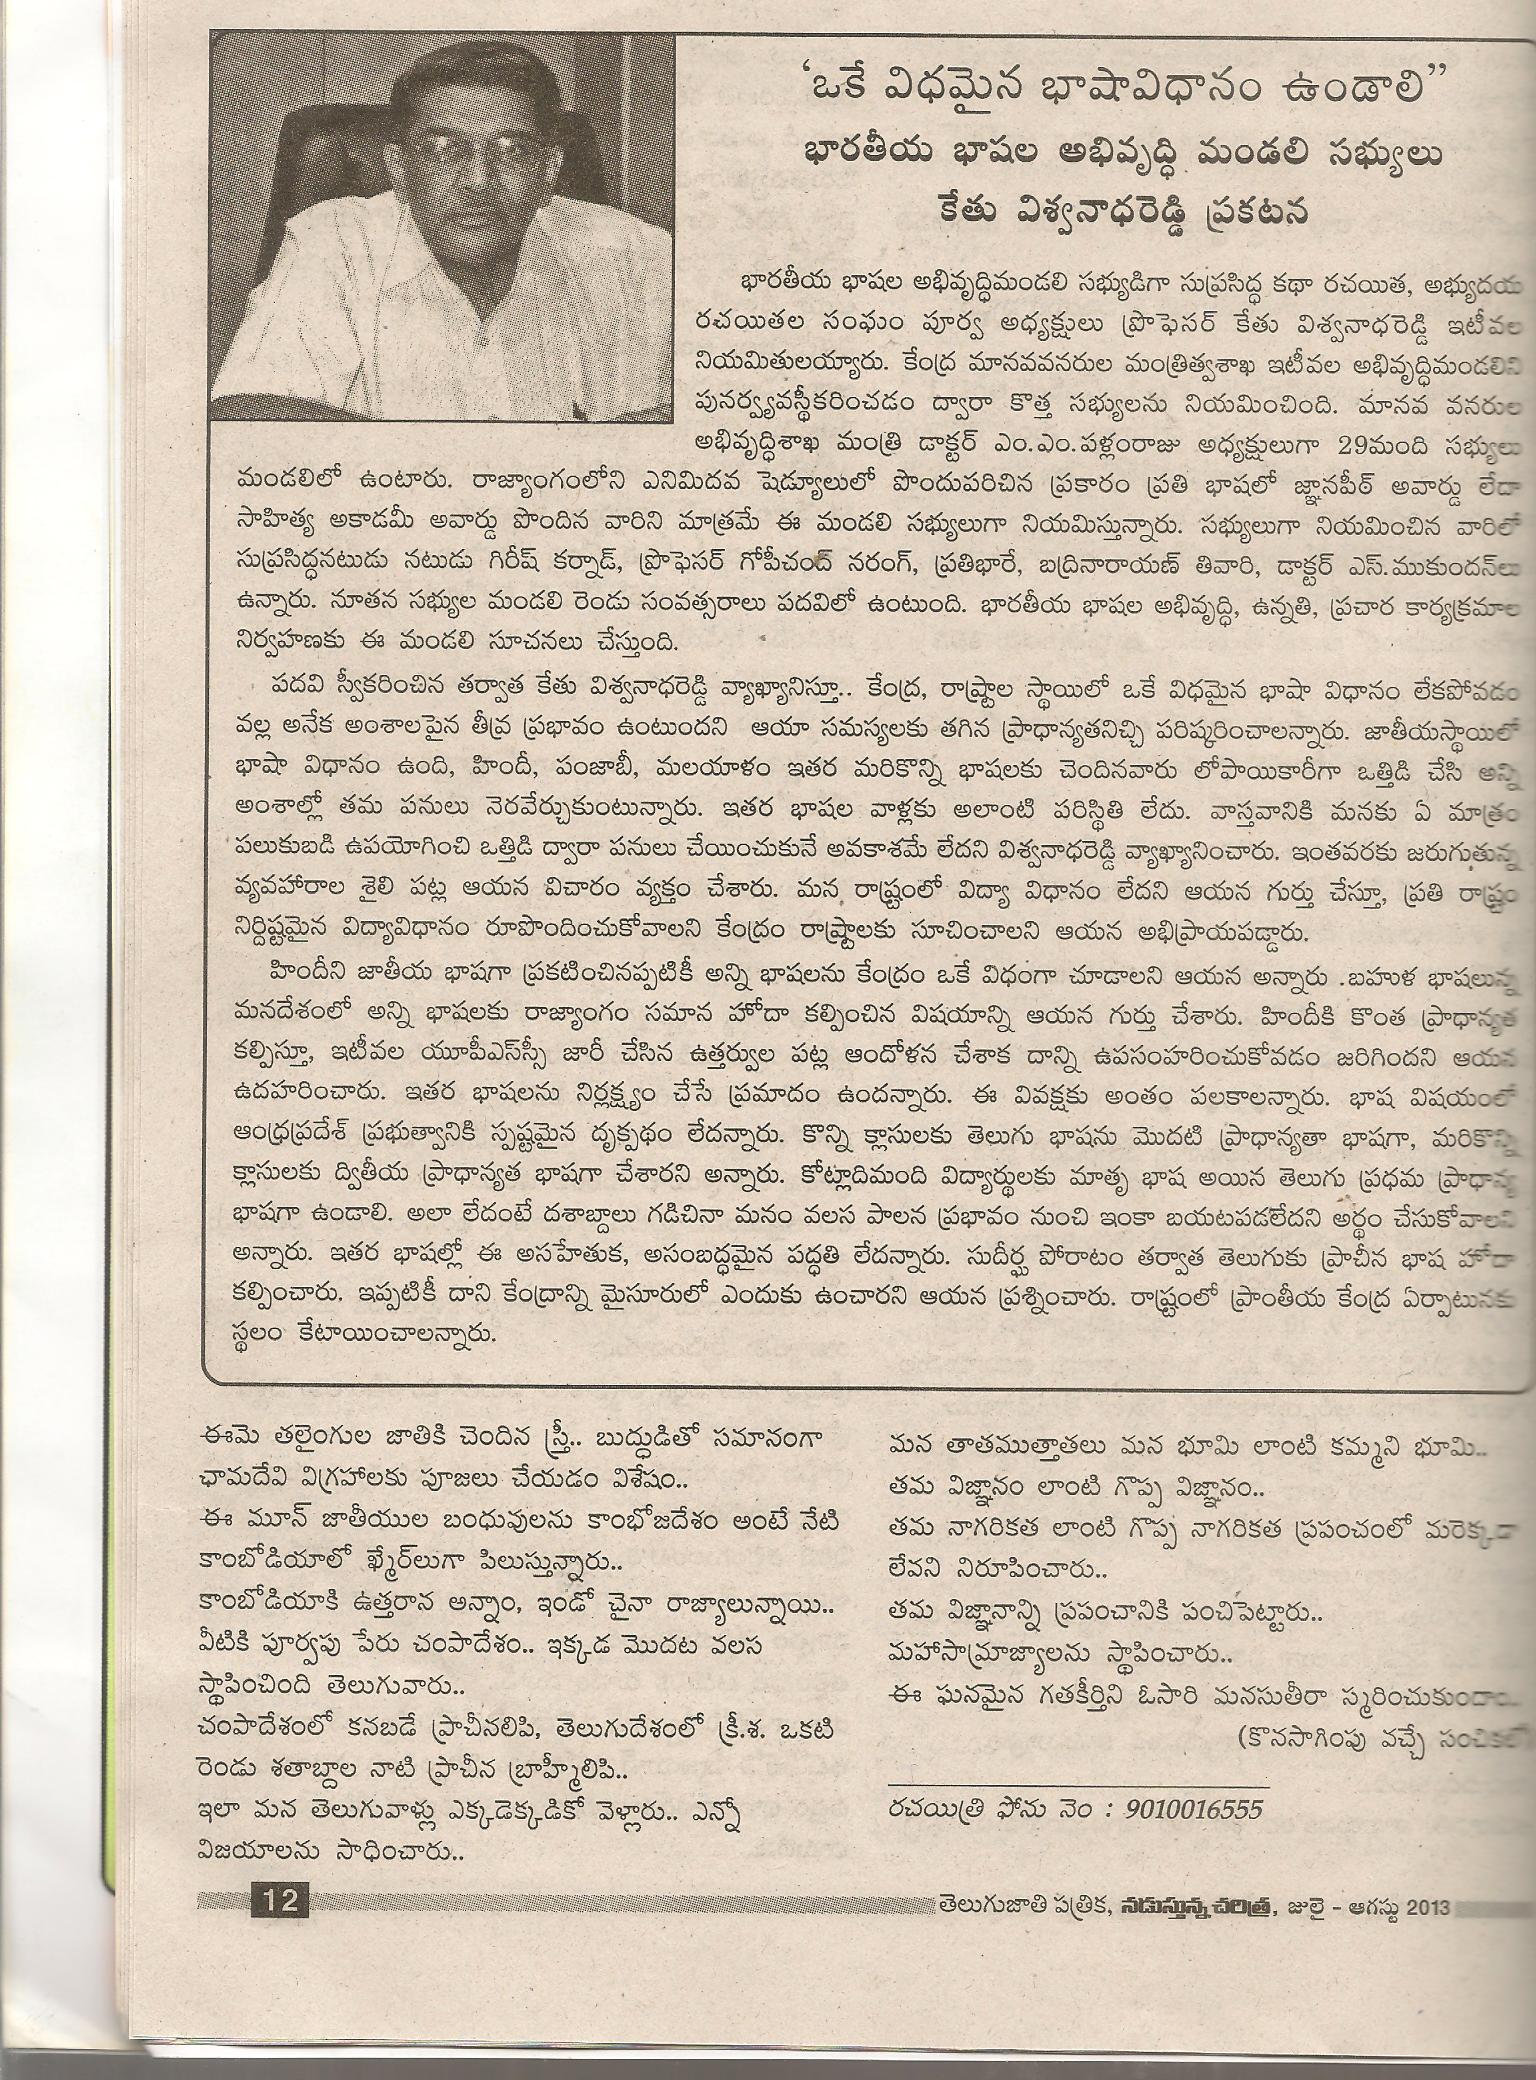 ‘ఒకే విధమైన భాషావిధానం ఉండాలి”
భారతీయ భాషల అభివృద్ధి మండలి సభ్యులు
కేతు విశ్వనాధరెడ్డి ప్రకటన
భారతీయ భాషల అభివృద్ధిమండలి సభ్యుడిగా సుప్రసిద్ధ కథా రచయిత, అభ్యుదయ
రచయితల సంఘం పూర్వ అధ్యక్షులు ప్రొఫెసర్ కేతు విశ్వనాధరెడ్డి ఇటీవల
నియమితులయ్యారు. కేంద్ర మానవవనరుల మంత్రిత్వశాఖ ఇటీవల అభివృద్ధిమండలిని
పునర్వ్యవస్థీకరించడం ద్వారా కొత్త సభ్యులను నియమించింది. మానవ వనరుల
అభివృద్ధిశాఖ మంత్రి డాక్టర్ ఎం.ఎం.పళ్లంరాజు అధ్యక్షులుగా 29మంది సభ్యులు
మండలిలో ఉంటారు. రాజ్యాంగంలోని ఎనిమిదవ షెడ్యూలులో పొందుపరిచిన ప్రకారం ప్రతి భాషలో జ్ఞానపీఠ్ అవార్డు లేదా
సాహిత్య అకాడమీ అవార్డు పొందిన వారిని మాత్రమే ఈ మండలి సభ్యులుగా నియమిస్తున్నారు. సభ్యులుగా నియమించిన వారిలో
సుప్రసిద్ధనటుడు నటుడు గిరీష్ కర్నాడ్, ప్రొఫెసర్ గోపీచంద్ నరంగ్, ప్రతిభారే, బద్రినారాయణ్ తివారి, డాక్టర్ ఎస్.ముకుందన్‌లు
ఉన్నారు. నూతన సభ్యుల మండలి రెండు సంవత్సరాలు పదవిలో ఉంటుంది. భారతీయ భాషల అభివృద్ధి, ఉన్నతి, ప్రచార కార్యక్రమాల
నిర్వహణకు ఈ మండలి సూచనలు చేస్తుంది.
పదవి స్వీకరించిన తర్వాత కేతు విశ్వనాధరెడ్డి వ్యాఖ్యానిస్తూ.. కేంద్ర, రాష్ట్రాల స్థాయిలో ఒకే విధమైన భాషా విధానం లేకపోవడం
వల్ల అనేక అంశాలపైన తీవ్ర ప్రభావం ఉంటుందని ఆయా సమస్యలకు తగిన ప్రాధాన్యతనిచ్చి పరిష్కరించాలన్నారు. జాతీయస్థాయిలో
భాషా విధానం ఉంది, హిందీ, పంజాబీ, మలయాళం ఇతర మరికొన్ని భాషలకు చెందినవారు లోపాయికారీగా ఒత్తిడి చేసి అన్ని
అంశాల్లో తమ పనులు నెరవేర్చుకుంటున్నారు. ఇతర భాషల వాళ్లకు అలాంటి పరిస్థితి లేదు. వాస్తవానికి మనకు ఏ మాత్రం
పలుకుబడి ఉపయోగించి ఒత్తిడి ద్వారా పనులు చేయించుకునే అవకాశమే లేదని విశ్వనాధరెడ్డి వ్యాఖ్యానించారు. ఇంతవరకు జరుగుతున్న
వ్యవహారాల శైలి పట్ల ఆయన విచారం వ్యక్తం చేశారు. మన రాష్ట్రంలో విద్యా విధానం లేదని ఆయన గుర్తు చేస్తూ, ప్రతి రాష్ట్రం
నిర్దిష్టమైన విద్యావిధానం రూపొందించుకోవాలని కేంద్రం రాష్ట్రాలకు సూచించాలని ఆయన అభిప్రాయపడ్డారు.
హిందీని జాతీయ భాషగా ప్రకటించినప్పటికీ అన్ని భాషలను కేంద్రం ఒకే విధంగా చూడాలని ఆయన అన్నారు .బహుళ భాషలున్న
మనదేశంలో అన్ని భాషలకు రాజ్యాంగం సమాన హోదా కల్పించిన విషయాన్ని ఆయన గుర్తు చేశారు. హిందీకి కొంత ప్రాధాన్యత
కల్పిస్తూ, ఇటీవల యూపీఎస్‌స్సీ జారీ చేసిన ఉత్తర్వుల పట్ల ఆందోళన చేశాక దాన్ని ఉపసంహరించుకోవడం జరిగిందని ఆయన
ఉదహరించారు. ఇతర భాషలను నిర్లక్ష్యం చేసే ప్రమాదం ఉందన్నారు. ఈ వివక్షకు అంతం పలకాలన్నారు. భాష విషయంలో
ఆంధ్రప్రదేశ్ ప్రభుత్వానికి స్పష్టమైన దృక్పథం లేదన్నారు. కొన్ని క్లాసులకు తెలుగు భాషను మొదటి ప్రాధాన్యతా భాషగా, మరికొన్ని
క్లాసులకు ద్వితీయ ప్రాధాన్యత భాషగా చేశారని అన్నారు. కోట్లాదిమంది విద్యార్థులకు మాతృ భాష అయిన తెలుగు ప్రధమ ప్రాధాన్య
భాషగా ఉండాలి. అలా లేదంటే దశాబ్దాలు గడిచినా మనం వలస పాలన ప్రభావం నుంచి ఇంకా బయటపడలేదని అర్థం చేసుకోవాలని
అన్నారు. ఇతర భాషల్లో ఈ అసహేతుక, అసంబద్ధమైన పద్ధతి లేదన్నారు. సుదీర్ఘ పోరాటం తర్వాత తెలుగుకు ప్రాచీన భాష హోదా
కల్పించారు. ఇప్పటికీ దాని కేంద్రాన్ని మైసూరులో ఎందుకు ఉంచారని ఆయన ప్రశ్నించారు. రాష్ట్రంలో ప్రాంతీయ కేంద్ర ఏర్పాటునకు
స్థలం కేటాయించాలన్నారు.
ఈమె తలైంగుల జాతికి చెందిన స్త్రీ.. బుద్ధుడితో సమానంగా
ఛామదేవి విగ్రహాలకు పూజలు చేయడం విశేషం..
ఈ మూన్ జాతీయుల బంధువులను కాంభోజదేశం అంటే నేటి
కాంబోడియాలో ఖ్మేర్‌లుగా పిలుస్తున్నారు..
కాంబోడియాకి ఉత్తరాన అన్నాం, ఇండో చైనా రాజ్యాలున్నాయి..
వీటికి పూర్వపు పేరు చంపాదేశం.. ఇక్కడ మొదట వలస
స్థాపించింది తెలుగువారు..
చంపాదేశంలో కనబడే ప్రాచీనలిపి, తెలుగుదేశంలో క్రీ.శ. ఒకటి
రెండు శతాబ్దాల నాటి ప్రాచీన బ్రాహ్మీలిపి..
ఇలా మన తెలుగువాళ్లు ఎక్కడెక్కడికో వెళ్లారు.. ఎన్నో
విజయాలను సాధించారు..
మన తాతముత్తాతలు మన భూమి లాంటి కమ్మని భూమి..
తమ విజ్ఞానం లాంటి గొప్ప విజ్ఞానం..
తమ నాగరికత లాంటి గొప్ప నాగరికత ప్రపంచంలో మరెక్కడా
లేవని నిరూపించారు..
తమ విజ్ఞానాన్ని ప్రపంచానికి పంచిపెట్టారు..
మహాసామ్రాజ్యాలను స్థాపించారు..
ఈ ఘనమైన గతకీర్తిని ఓసారి మనసుతీరా స్మరించుకుందాం..
(కొనసాగింపు వచ్చే సంచికలో
రచయిత్రి ఫోను నెం : 9010016555
12 తెలుగుజాతి పత్రిక, నడుస్తున్న చరిత్ర, జులై - ఆగస్టు 2013